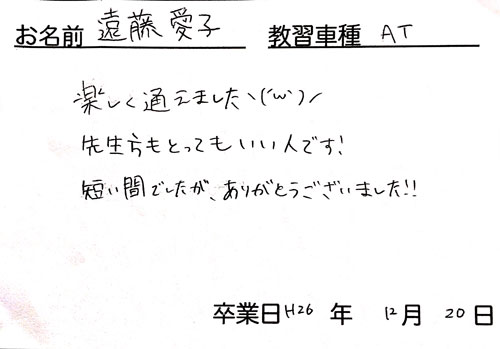 お名前 遠藤愛子 教習車種 AT
楽しく通えましたヽ(´ω`)ノ
先生方もとってもいい人です!
短い間でしたが、ありがとうございました!!
卒業日 H26 年 12月 20日